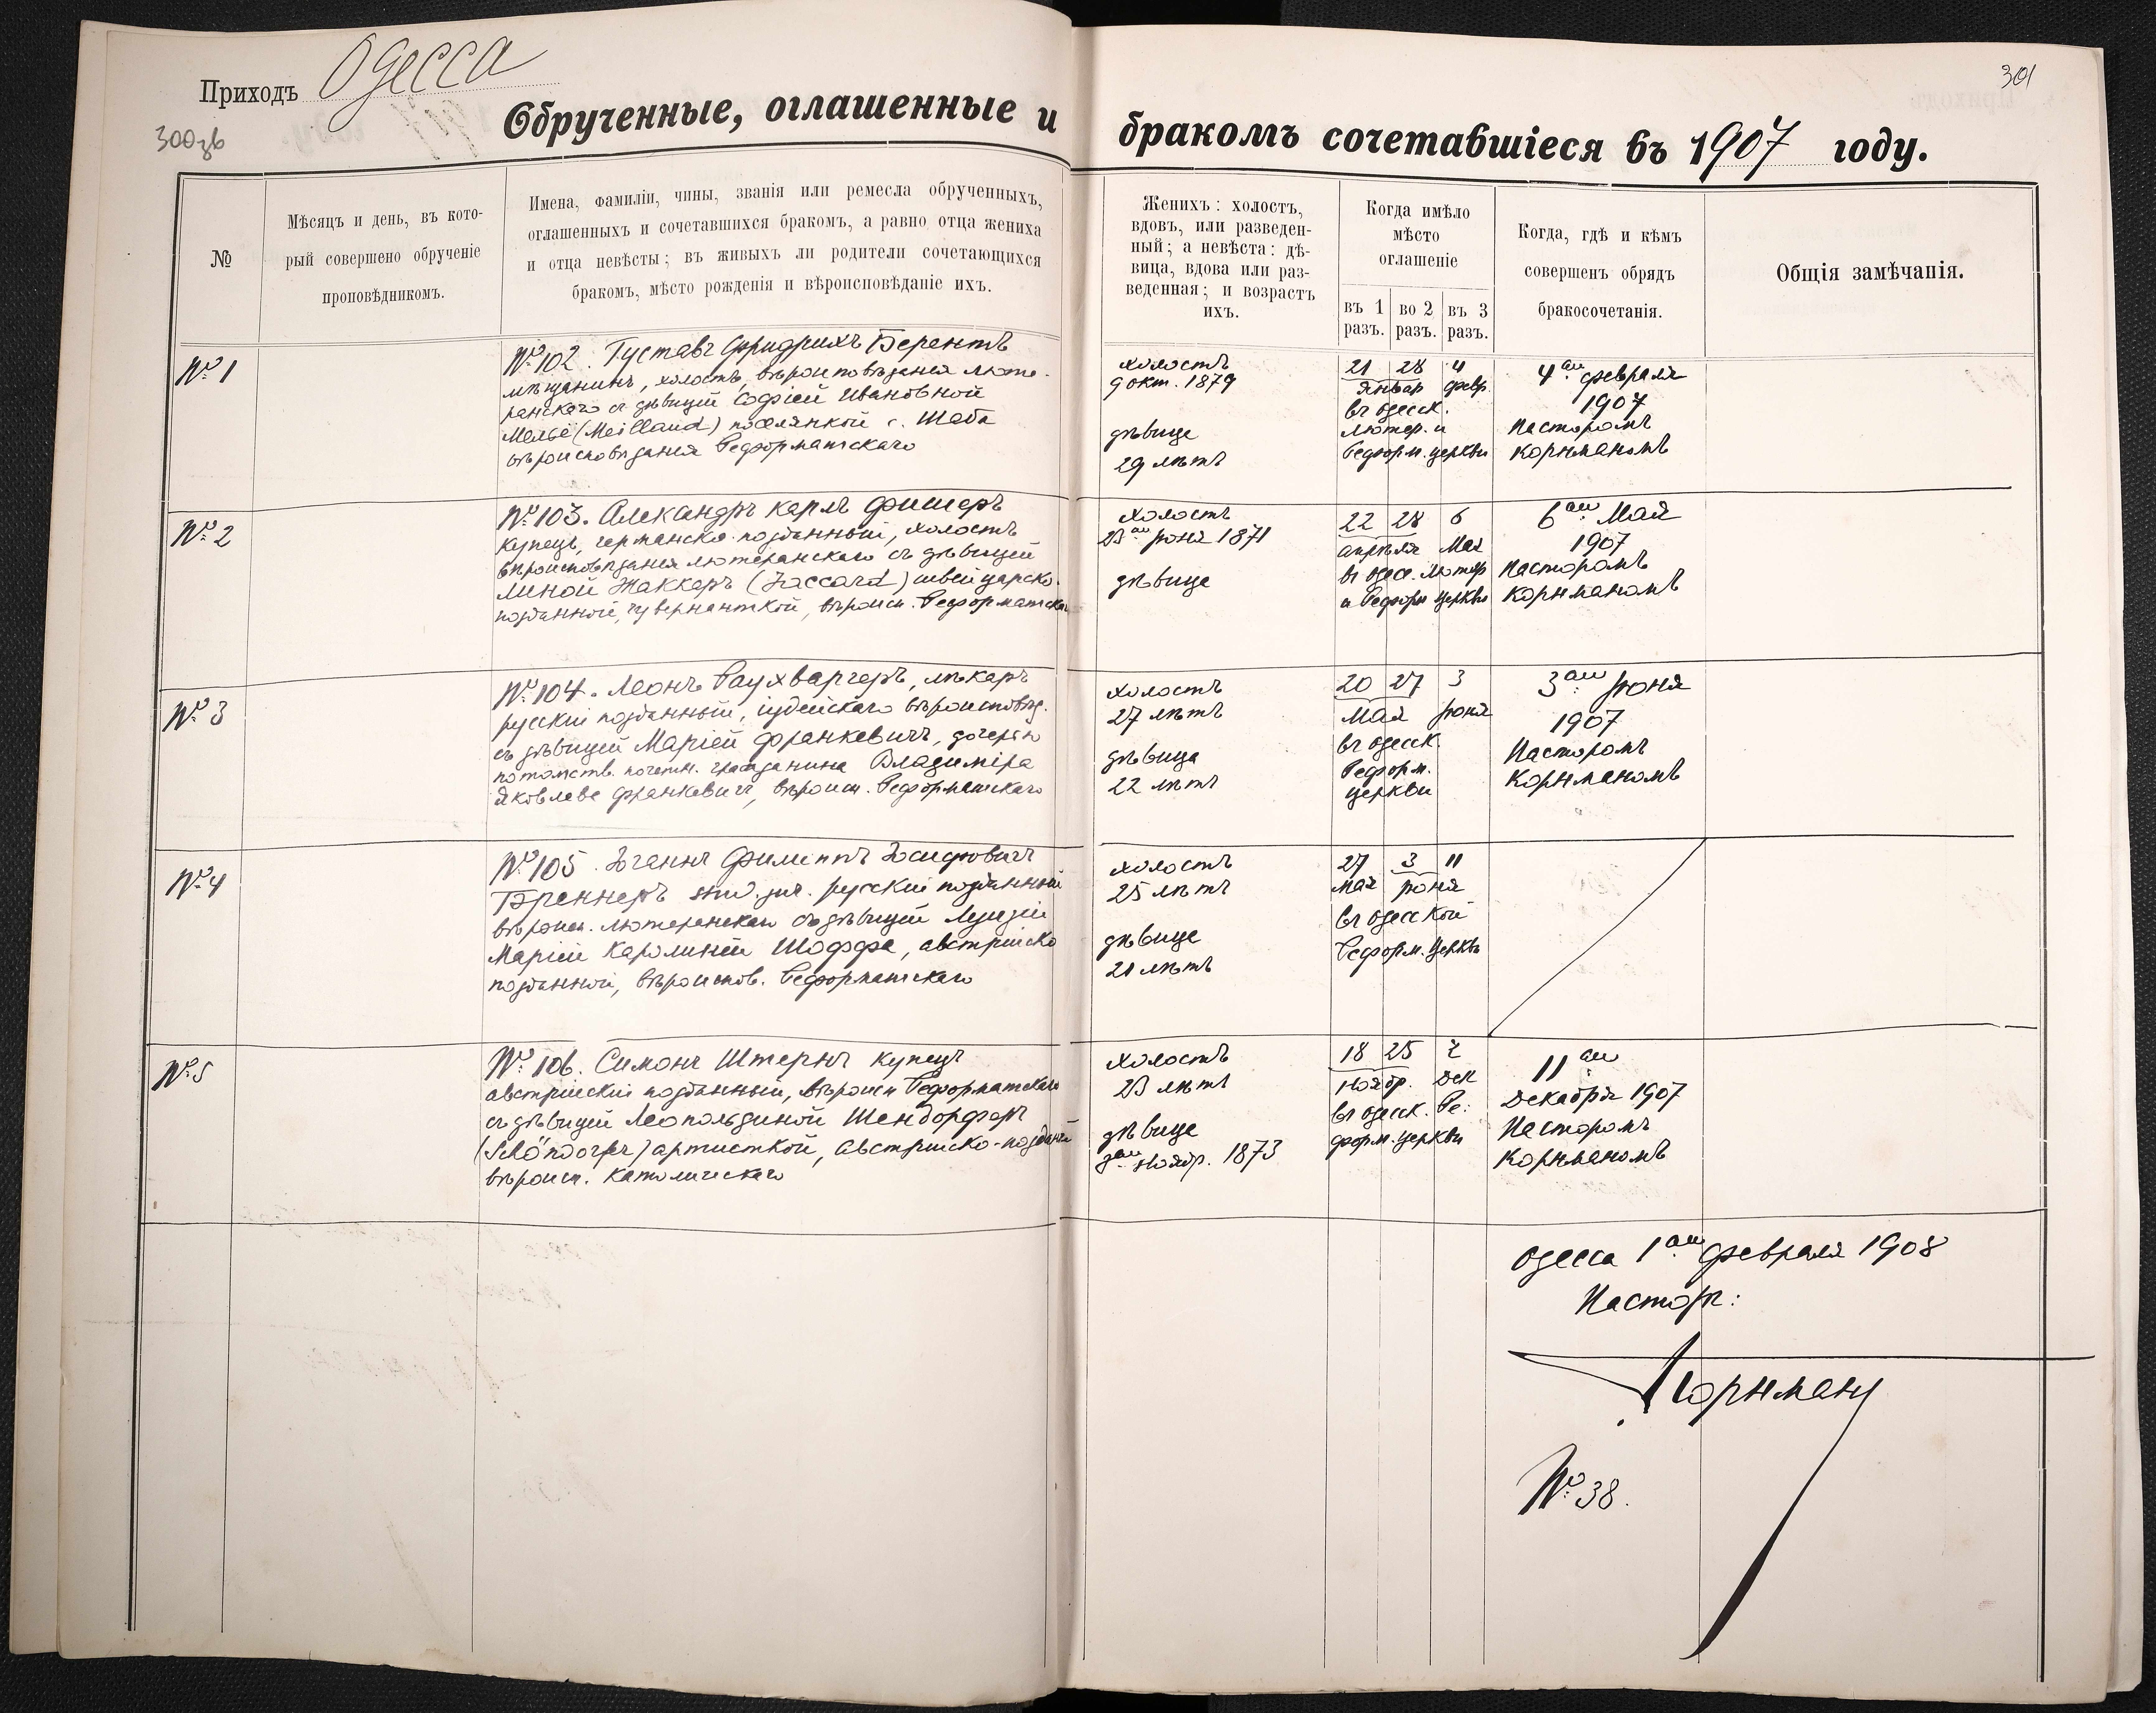 Приходъ Одесса
300зв
301
Обрученные, оглашенные и бракомъ сочетавшіеся въ 1907 году.
№
Мѣсяцъ и день, въ кото-
рый совершено обрученіе
проповѣдникомъ.
Имена, фамиліи, чины, званія или ремесла обрученныхъ,
оглашенныхъ и сочетавшихся бракомъ, а равно отца жениха
и отца невѣсты; въ живыхъ ли родители сочетающихся
бракомъ, мѣсто рожденія и вѣроисповѣданіе ихъ.
Женихъ: холостъ,
вдовъ, или разведен-
ный; а невѣста: дѣ-
вица, вдова или раз-
веденная; и возрастъ
ихъ.
Когда имѣло
мѣсто
оглашеніе
въ 1 разъ.
во 2 разъ.
въ 3 разъ.
Когда, гдѣ и кѣмъ
совершенъ обрядъ
бракосочетанія.
Общія замѣчанія.
№ 1
№ 102. Густавъ Фридрихъ Берентъ
мѣщанинъ, холостъ, вѣроисповѣданія люте-
ранскаго съ дѣвицей Софіей Ивановной
Мелье (Meilland) поселянкой с. Шаба
вѣроисповѣданія Реформатскаго
холостъ
9 окт. 1879
дѣвице
29 лѣтъ
21 28 4
Январ февр.
въ одесск.
лютер. и
Реформ. церкви
4аго февраля
1907
Пасторомъ
Корнманомъ
№ 2
№ 103. Александръ Карлъ Фишеръ
купецъ, германско-подданный, холостъ
вѣроисповѣданія лютеранскаго съ дѣвицей
Линой Жаккаръ (Jaccard) швейцарско-
подданной, гувернанткой, вѣроисп. Реформатскаго
холостъ
23аго Іюня 1871
дѣвице
22 28 6
апрѣля Мая
въ одесс. Лютер
и Реформ церкви
6аго Мая
1907
Пасторомъ
Корнманомъ
№ 3
№ 104. Леонъ Раухваргеръ, лѣкарь
русскій подданный, іудейскаго вѣроисповѣд.
съ дѣвицей Маріей Франкевичъ, дочерью
потомств. почетн. гражданина Владиміра
Яковлева Франкевичъ, вѣроисп. Реформатскаго
холостъ
27 лѣтъ
дѣвица
22 лѣтъ
20 27 3
Мая Іюня
въ одесск.
Реформ.
церкви
3аго Іюня
1907
Пасторомъ
Корнманомъ
№ 4
№ 105. Іоганнъ Филиппъ Іосифовичъ
Бреннеръ русскій подданный
вѣроисп. лютеранскаго съ дѣвицей Луизой
Маріей Каролиной Шоффа, австрійско
подданной, вѣроиспов. Реформатскаго
холостъ
25 лѣтъ
дѣвице
21 лѣтъ
27 3 11
Мая Іюня
въ одесской
Реформ. Церквь
№ 5
№ 106. Симонъ Штернъ купецъ
австрійскій подданный, вѣроисп Реформатскаго
съ дѣвицей Леопольдиной Шендорферъ
(Schöndorfer) артисткой, австрійско-подданой
вѣроисп. Католическаго
холостъ
23 лѣтъ
дѣвице
3аго Ноябр. 1873
18 25 2
Ноябр. Дек
въ одесск. Ре:
форм. церкви
11аго
Декабря 1907
Пасторомъ
Корнманомъ
Одесса 1аго февраля 1908
Пасторъ:
Корнманъ
№ 38.